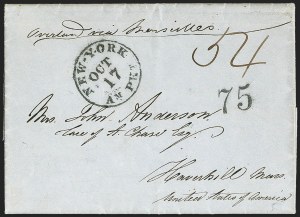 Overland via Marseilles
54
NEW-YORK
OCT
17
AM PKT
75
Mrs. John Anderson
Care of A Chase Esq.
Haverhill Mass.
United States of America